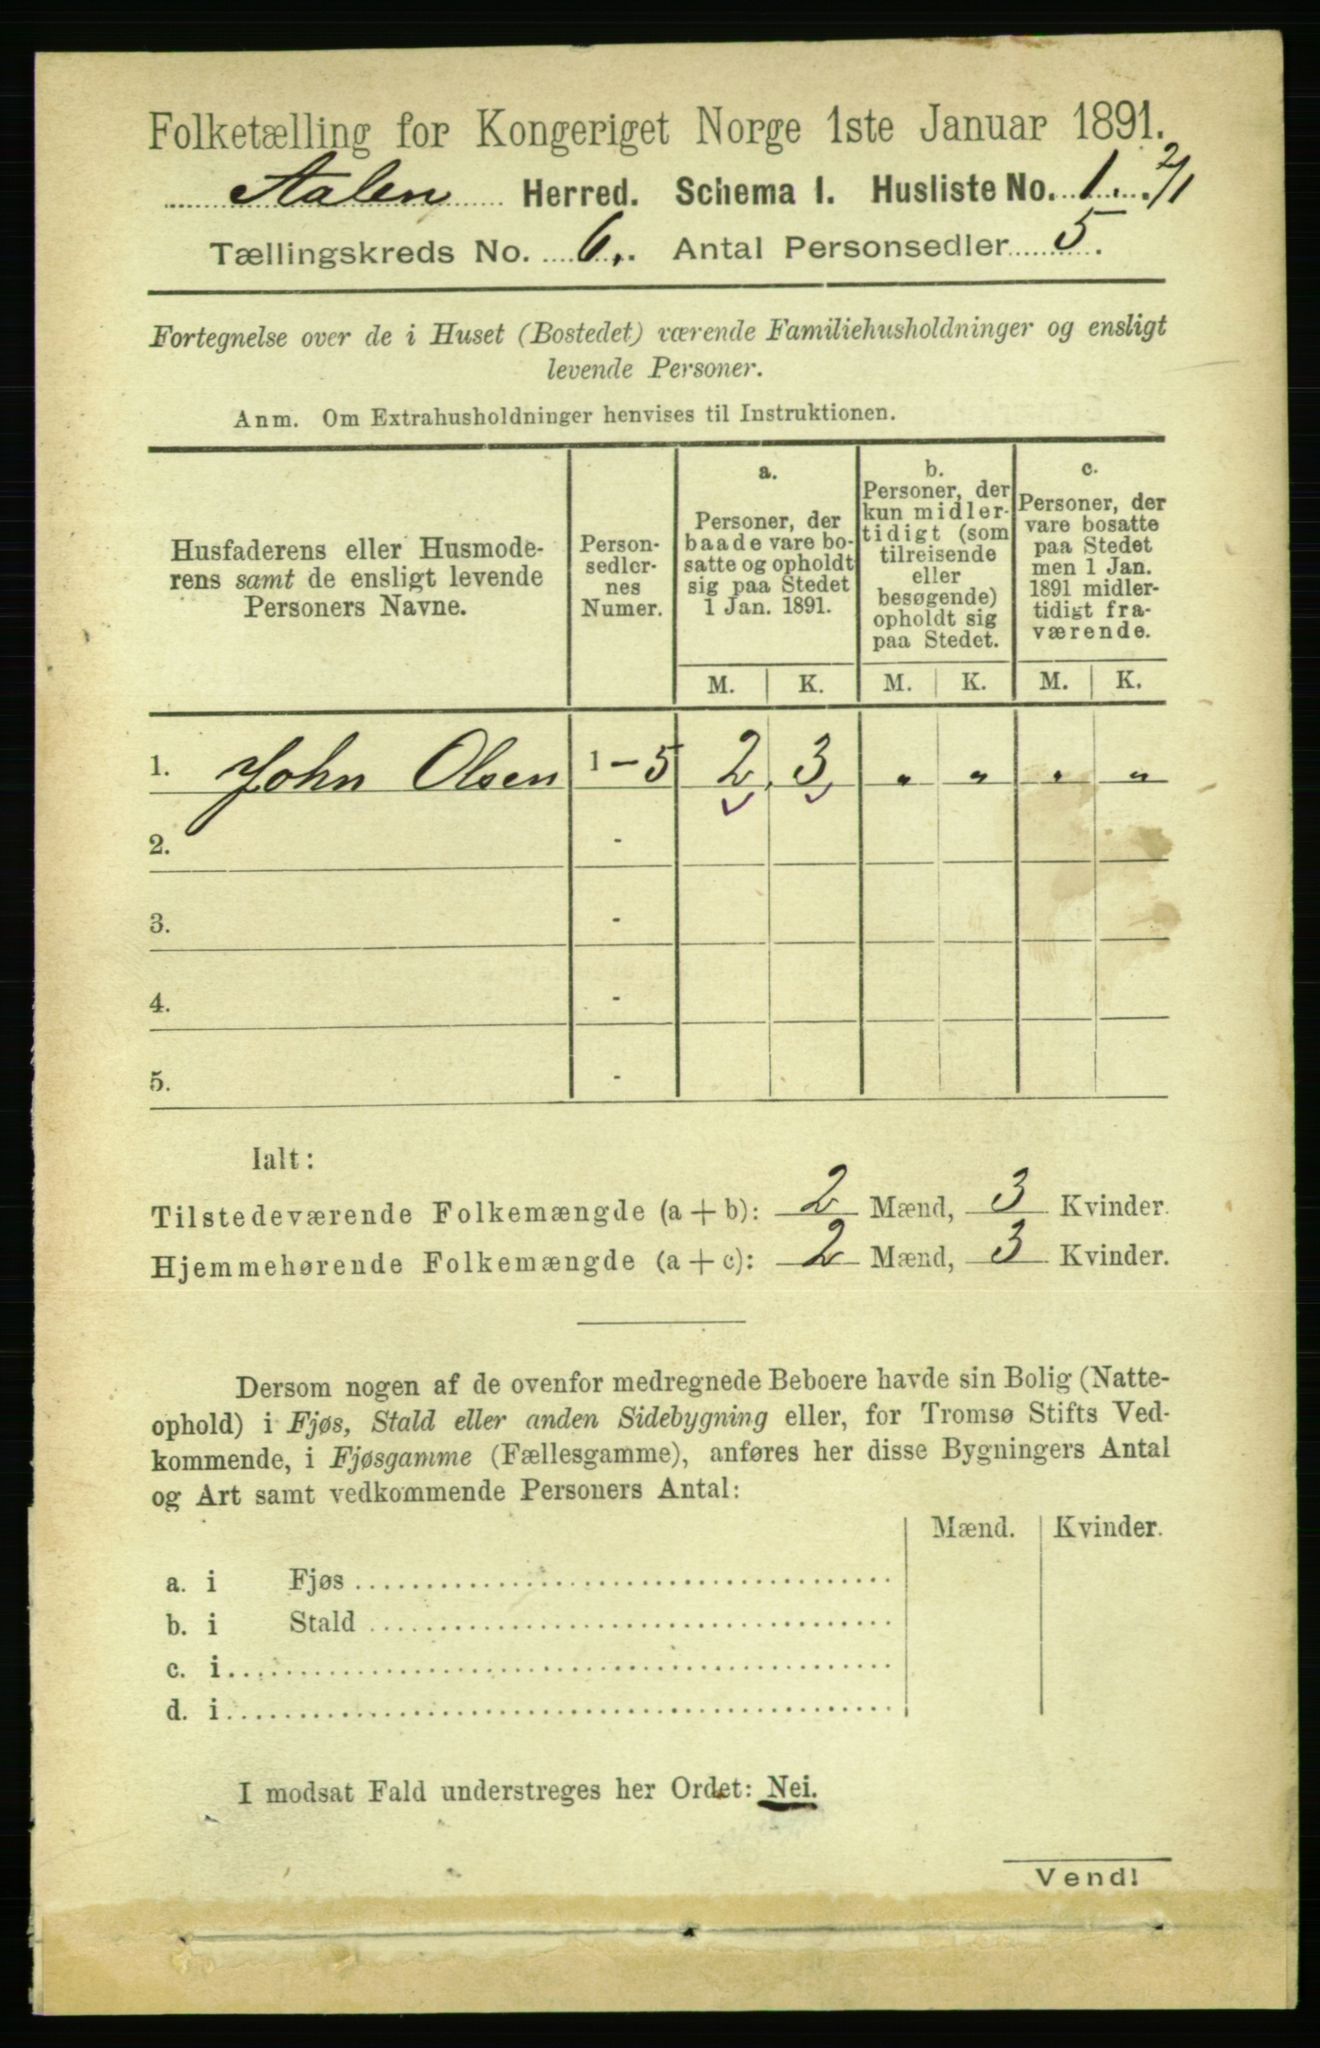 Folketælling for Kongeriget Norge 1ste Januar 1891.
Aalen Herred. Schema I. Husliste No. 1. 2/1
Tællingskreds No. 6. Antal Personsedler 5.
Fortegnelse over de i Huset (Bostedet) værende Familiehusholdninger og ensligt
levende Personer.
Anm. Om Extrahusholdninger henvises til Instruktionen.
Husfaderens eller Husmode-
rens samt de ensligt levende
Personers Navne.
Person-
sedler-
nes
Numer.
a.
Personer, der
baade vare bo-
satte og opholdt
sig paa Stedet
1 Jan. 1891.
b.
Personer, der
kun midler-
tidigt (som
tilreisende
eller
besøgende)
opholdt sig
paa Stedet.
c.
Personer, der
vare bosatte
paa Stedet
men 1 Jan.
1891 midler-
tidigt fra-
værende.
M. K. M. K. M. K.
1. John Olsen 1 - 5 2 3 " " " "
2. -
3. -
4. -
5. -
Ialt:
Tilstedeværende Folkemængde (a + b): 2 Mænd, 3 Kvinder.
Hjemmehørende Folkemængde (a + c): 2 Mænd, 3 Kvinder.
Dersom nogen af de ovenfor medregnede Beboere havde sin Bolig (Natte-
ophold) i Fjøs, Stald eller anden Sidebygning eller, for Tromsø Stifts Ved-
kommende, i Fjøsgamme (Fællesgamme), anføres her disse Bygningers Antal
og Art samt vedkommende Personers Antal:
Mænd. Kvinder.
a. i Fjøs
b. i Stald
c. i
d. i
I modsat Fald understreges her Ordet: Nei.
Vend!